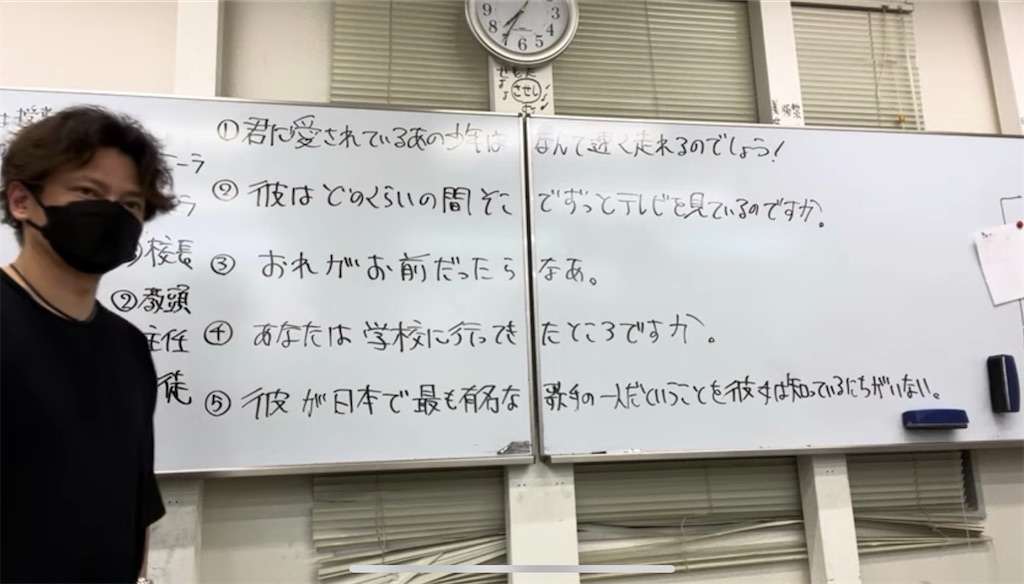 9
8
7
6
5
4
3
させし
① 君に愛されているあの少年は なんて速く走れるのでしょう!
② 彼はどのくらいの間そこ でずっとテレビを見ているのですか。
③ おれがお前だったら なあ。
④ あなたは学校に行ってき たところですか。
⑤ 彼が日本で最も有名な 歌手の一人だということを彼女は知っているにちがいない。
ーラ
ラ
校長
②教頭
主任
徒